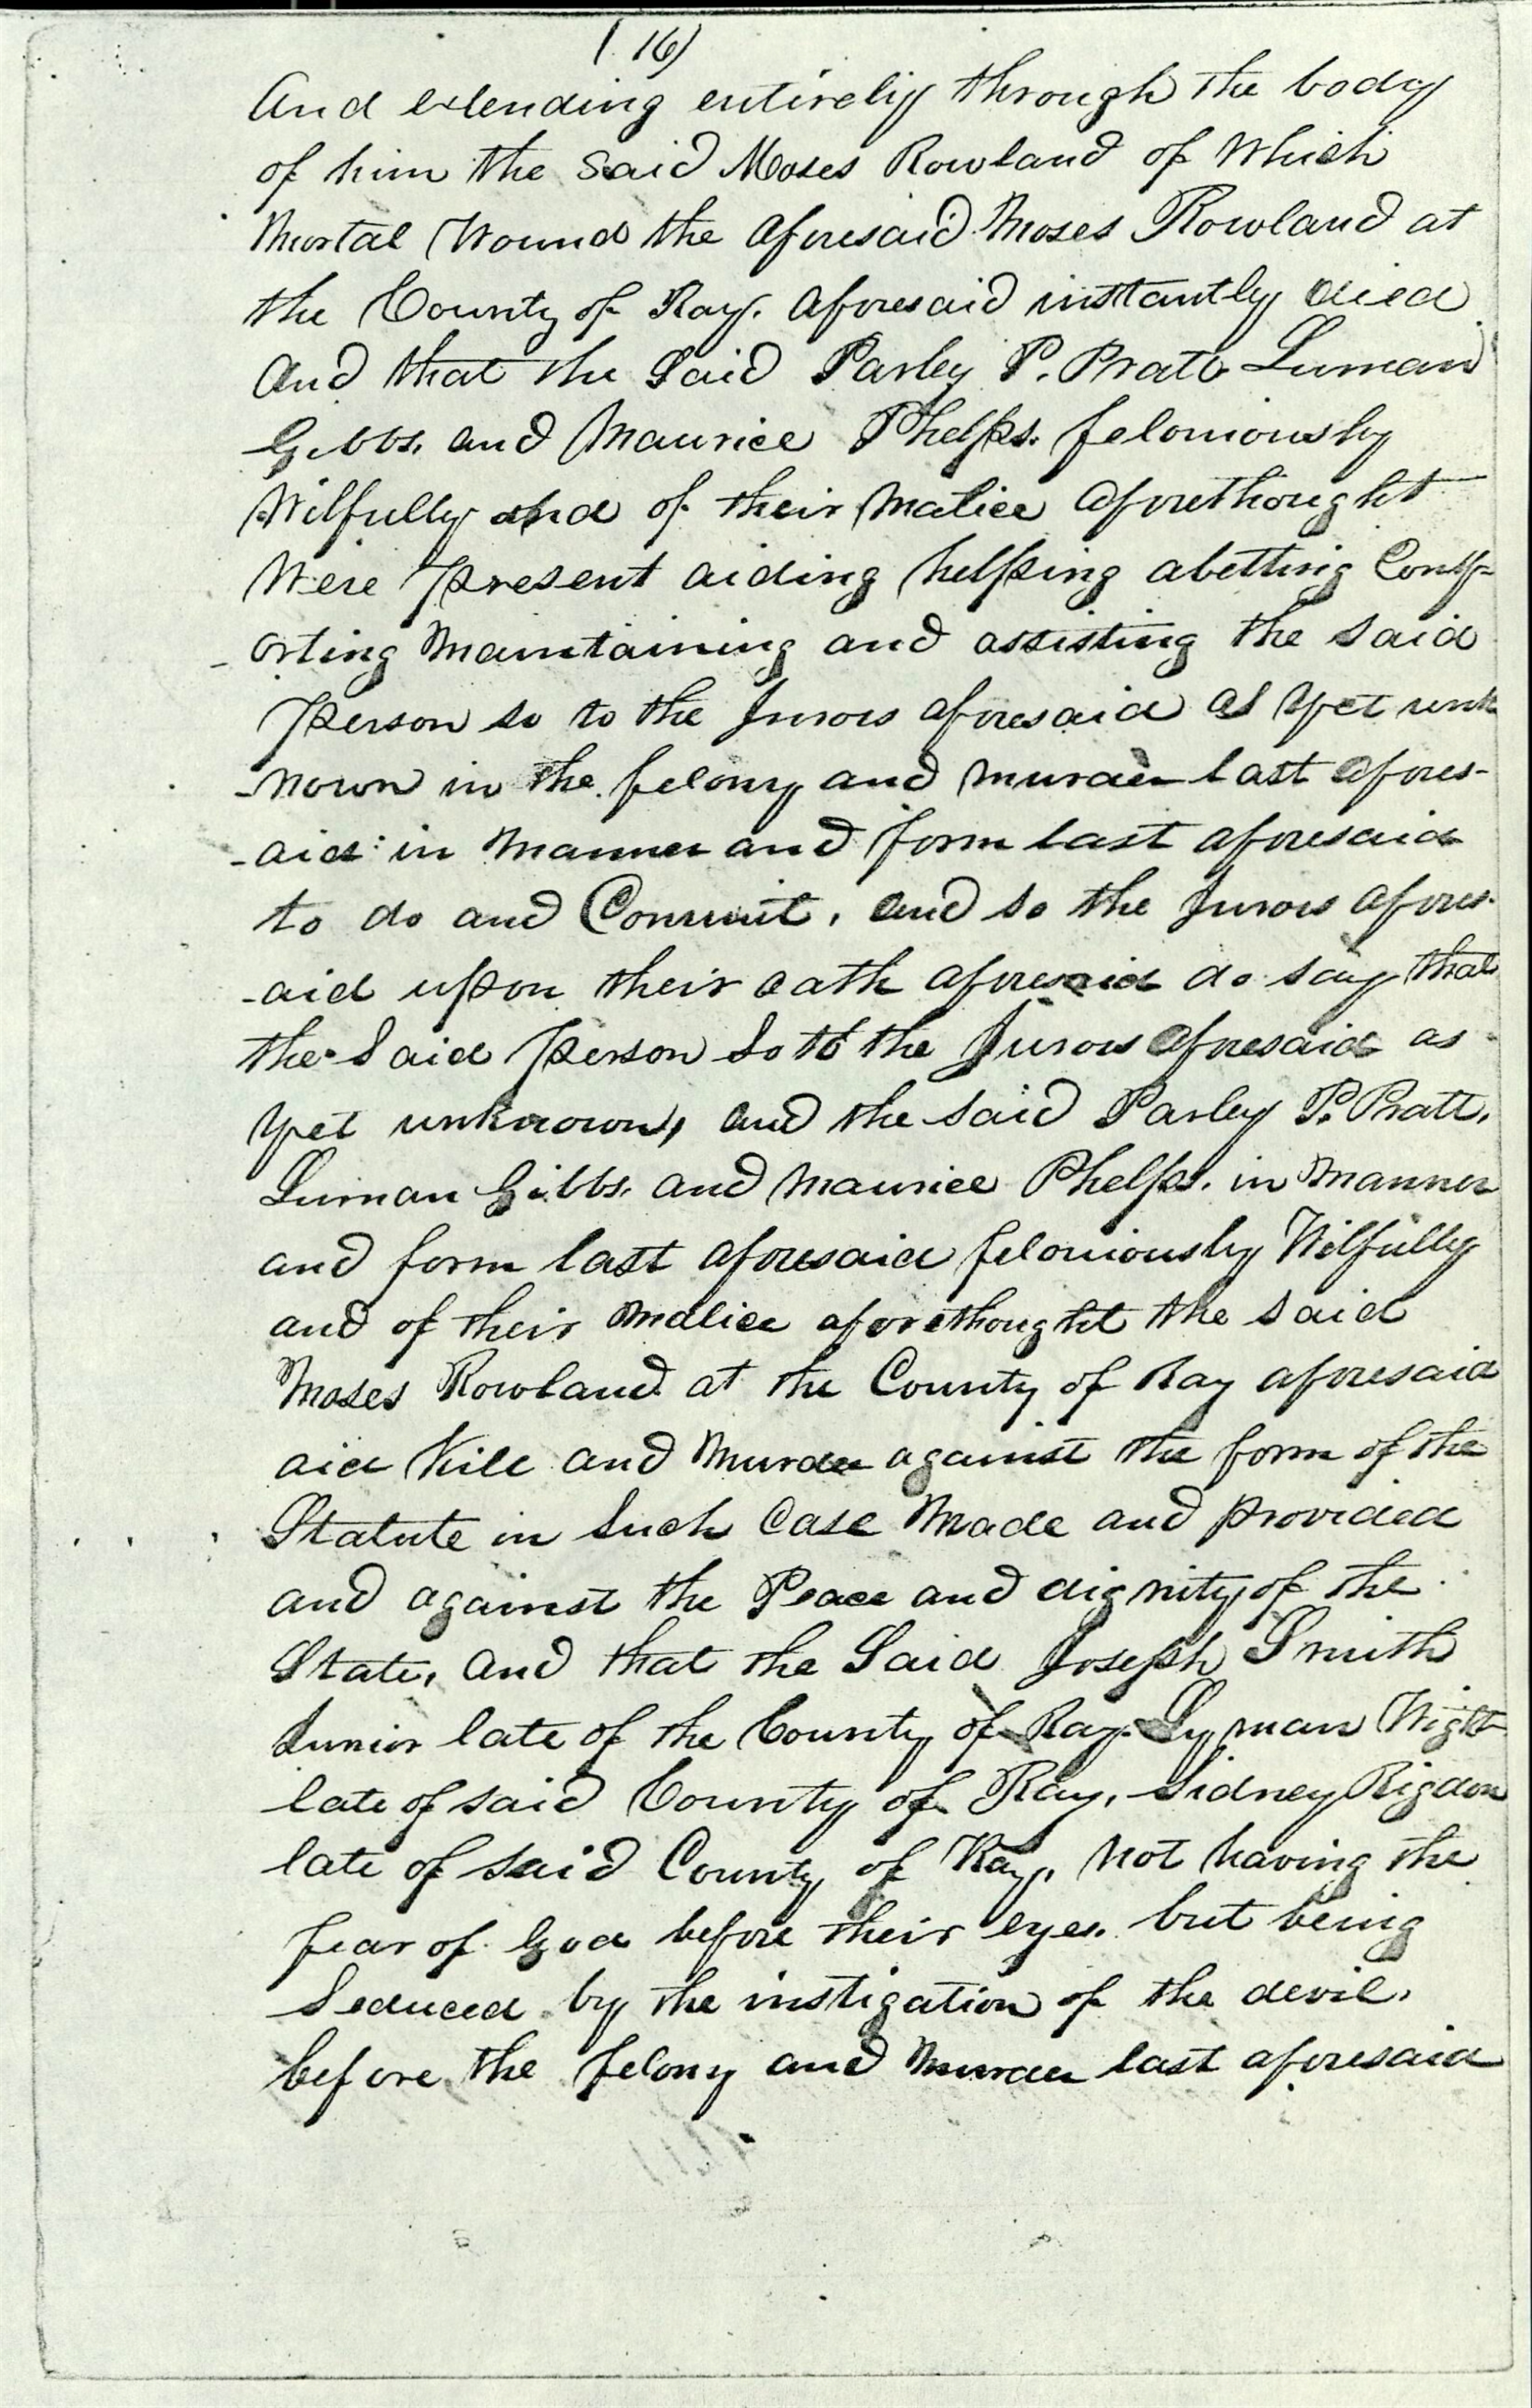 ( 16)
And extending entirely through the body
of him the Said Moses Rowland of Which
Mortal Wound the aforesaid Moses Rowland at
the County of Ray. aforesaid instantly died
And that the Said Parley P. Pratt Luman
Gibbs. and Maurice Phelps. feloniously
Wilfully and of their Malice aforethought
Were Present aiding helping abetting Comf-
-orting Maintaining and assisting the Said
Person so to the Jurors aforesaid as yet unk
-nown in the felony and murder last afores-
-aid in Manner and form last aforesaid
to do and Commit, and so the Jurors afores-
-aid upon their oath aforesaid do say that
the Said Person so to the Jurors aforesaid as
yet unknown, and the said Parley P. Pratt,
Luman Gibbs. and Maurice Phelps. in Manner
and form last aforesaid feloniously Wilfully
and of their Malice aforethought the Said
Moses Rowland at the County of Ray aforesaid
did Kill and Murder against the form of the
Statute in Such Case Made and provided
and against the Peace and dignity of the
State, and that the Said Joseph Smith
Junior late of the County of Ray. Lyman Wight
late of said County of Ray, Sidney Rigdon
late of said County of Ray, not having the
fear of God before their eyes. but being
Seduced by the instigation of the devil,
before the felony and Murder last aforesaid